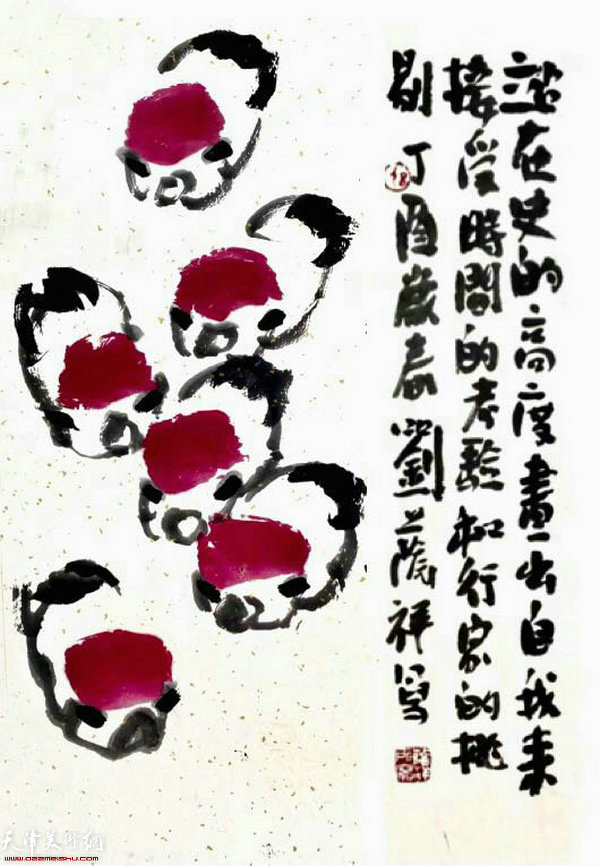 站在史的高度畫出自我来
接受時間的考驗和行家的挑
剔 丁酉歲春劉蔭祥写
天津美术网
www.022meishu.com